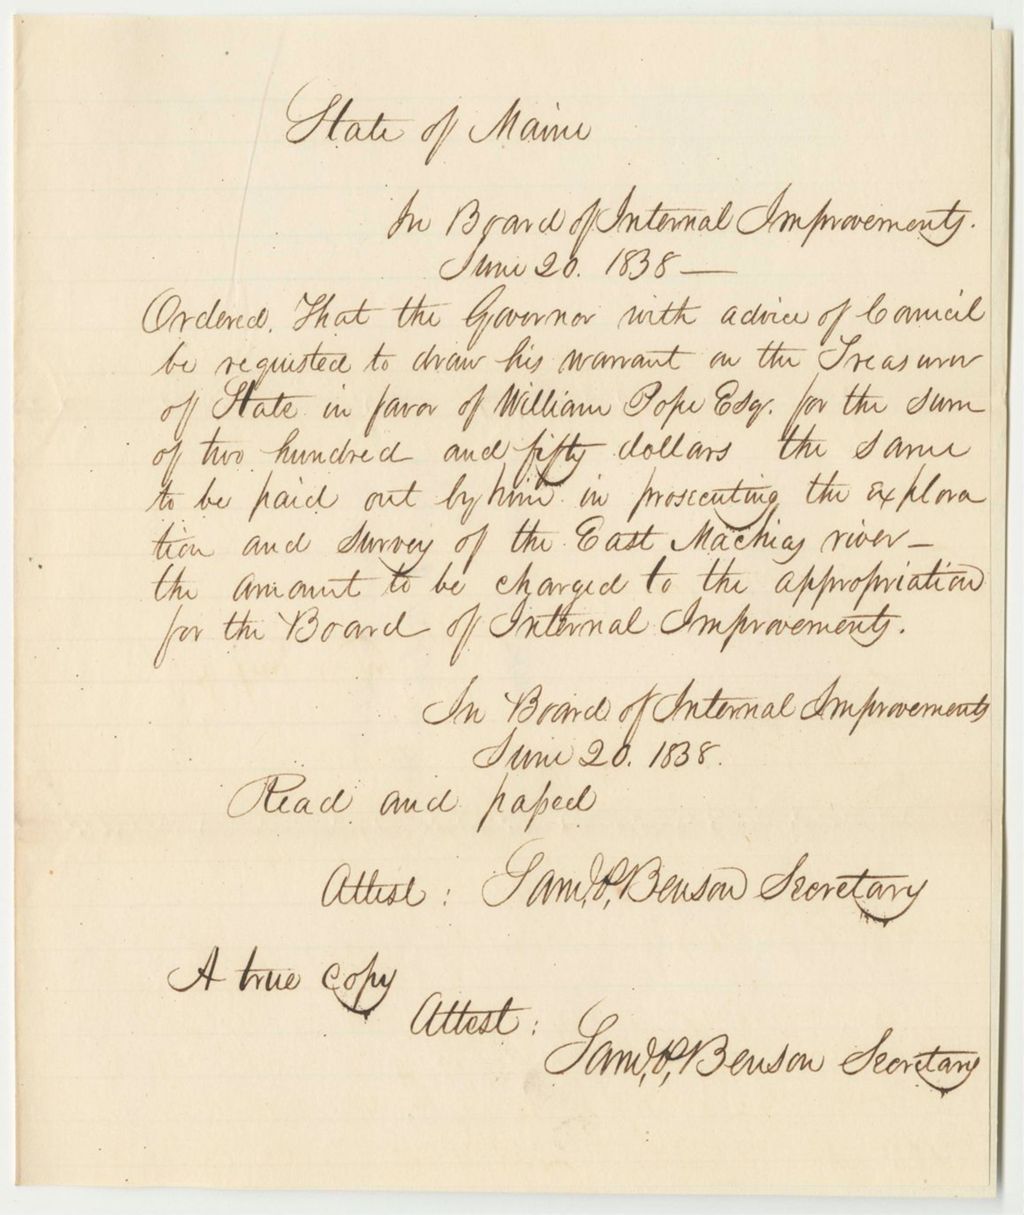 State of Maine
In Board of Internal Improvements.
June 20. 1838 —
Ordered, That the Governor with advice of Council
be requested to draw his warrant on the Treasurer
of State in favor of William Pope Esqr. for the sum
of two hundred and fifty dollars the same
to be paid out by him in prosecuting the explora
tion and survey of the East Machias river —
the amount to be charged to the appropriation
for the Board of Internal Improvements.
In Board of Internal Improvements
June 20. 1838.
Read and passed
Attest: Saml. P. Benson Secretary
A true copy
Attest:
Saml. P. Benson Secretary